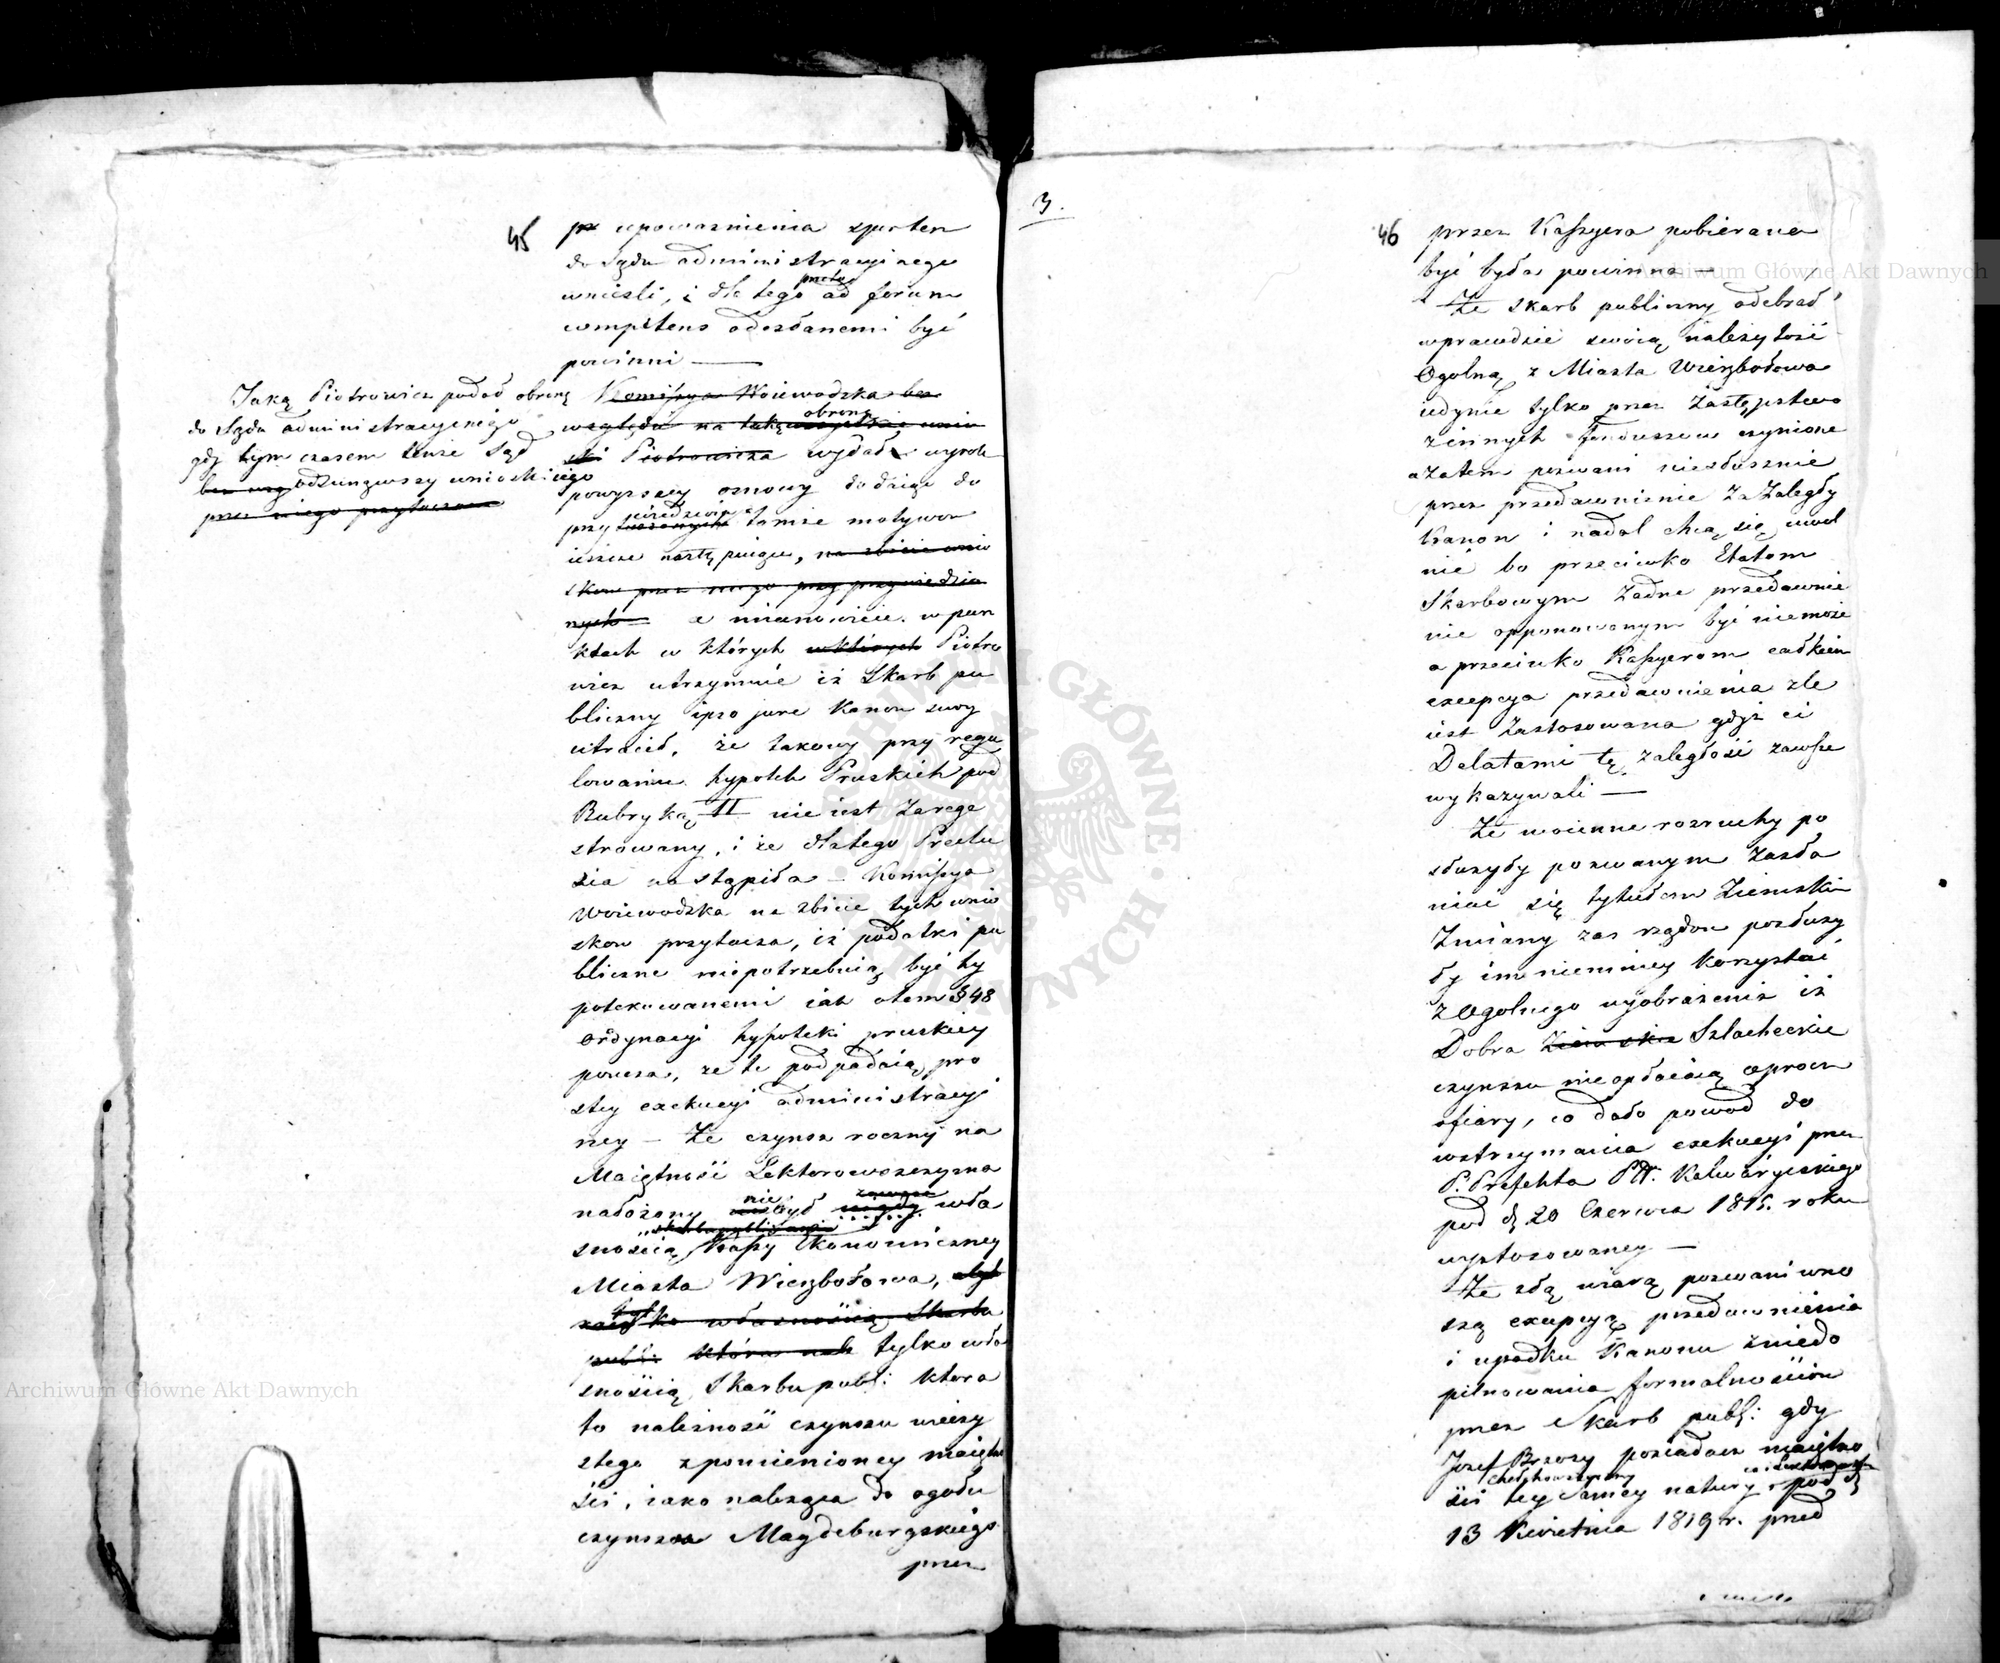 45
upoważnienia zporten
do Sądu administracyinego
wnieśli, i dla tego przeto ad forum
competens odesłanemi być
powinni —
Jaką Piotrowicz podał obronę
do Sądu administracyinego
gdy tym czasem tenże Sąd
bez wzg odsunąwszy wnioski iego
przez niego przytoczone
Komissya Woiewodzka bez
względu na taką obronę wszystkie wnio
ski Piotrowicza wydał wyrok
powyższey osnowy dodaiąc do
przywiedzionych tamże motywow
ieszcze następuiące, na zbicie wnio
skow przez niego przywiedzio
nych — a mianowicie w pun
ktach w których w których Piotro
wicz utrzymuie iż Skarb pu
bliczny ipso jure Kanon swoy
utracił, że takowy przy regu
lowaniu hypotek Pruskich pod
Rubryką II nie iest zarege
strowany, i że dlatego Preclu
zia nastąpiła — Komissya
Woiewodzka na zbicie tych wnio
skow przytacza, iż podatki pu
bliczne niepotrzebuią być hy
potekowanemi iak o tem § 48
Ordynacyi hypoteki pruskiey
poucza, że te podpadaią pro
stey exekucyi administracyi
ney — Że czynsz roczny na
Maiętność Lektorowszczyzna
nałożony nie był nigdy zawsze wła
snością Skarbu publicznego Kassy Ekonomiczney
Miasta Wierzbołowa, ale
tylko własnością Skarbu
publ: która tylko wła
snością Skarbu publ: ktora
to należność czynszu wieczy
stego z pomienioney maiętno
ści, iako należąca do ogołu
czynszu Magdeburgskiego
przez
3.
46
przez Kassyera pobierana
być była powinna —
Że skarb publiczny odebrał
wprawdzie swoią należytość
Ogolną z Miasta Wierzbołowa
iedynie tylko przez Zastępstwo
z innych funduszow czynione
a zatem pozwani niesłusznie
przez przedawnienie za zaległy
Kanon i nadal chcą się uwol
nić bo przeciwko Etatom
Skarbowym żadne przedawnie
nie opponowanym być niemoże
a przeciwko Kassyerom całkiem
excepcya przedawnienia źle
iest zastosowana gdyż ci
Delatami tę zaległość zawsze
wykazywali —
Że woienne rozruchy po
służyły pozwanym zasła
niać się tytułem Ziemskim
Zmiany zas rządow posłuży
ły im niemniey korzystać
z Ogolnego wyobrażenia iż
Dobra Ziemskie Szlacheckie
czynszu nieopłacaią oprocz
ofiary, co dało powod do
wstrzymania exekucyi przez
P. Prefekta Ptt. Kalwaryiskiego
pod d. 20 Czerwca 1815. roku
wystosowaney —
Że złą wiarą pozwani wno
szą excepcyą przedawnienia
i upadku Kanonu z niedo
pilnowania formalnościow
przez Skarb publ: gdy
Jozef Brzozy posiadacz maiętno
ści Chełchowszczyzny tey samey natury co i Lektorowszcz. pod d.
13 Kwietnia 1819 r. przed
Archiwum Główne Akt Dawnych
Archiwum Główne Akt Dawnych
ARCHIWUM GŁÓWNE AKT DAWNYCH